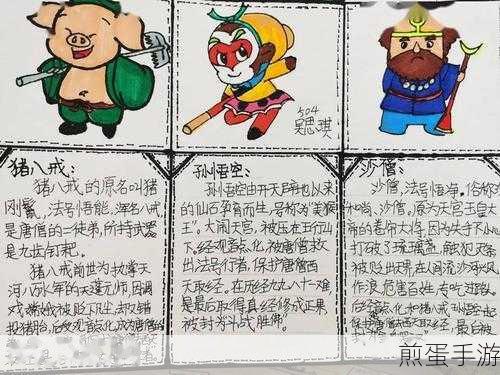 504
吴思琪
猪八戒:
猪八戒的原名叫猪
刚鬣,法号悟能,浑名八戒
是唐僧的二徒弟,所持武器
是九齿钉耙。
猪八戒前世为执掌天
河八万水军的天蓬元帅,因调
戏嫦娥被贬下凡,却又错
投猪胎,后被观音点化,成为唐僧的
孙悟空:
孙悟空由开天辟地以来
的仙石孕育而生,号称为"美猴
王"。大闹天宫,被压在五行山
下,经观音点化,被唐僧救
出,法号行者,保护唐僧西
天取经,在历经九九八十一难
是最后取得真经修成正果
被封为斗战胜佛。
沙僧:
沙僧,法号悟净,俗称
和尚、沙僧。原为天宫玉皇大
帝的卷帘大将,因为失手
打破了琉璃盏,触犯天条
被贬出天界,在人间流沙河
作浪,危害百姓,专吃过路人
后经
煎蛋手游